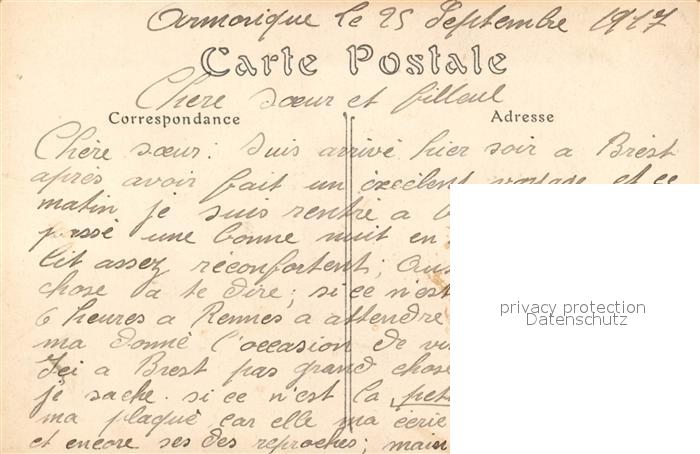 Armorique le 25 Septembre 1917
Carte Postale
Chere sœur et filleul
Correspondance
Adresse
Chère sœur: Suis arrivé hier soir a Brest
après avoir fait un éxcelent voyage et ce
matin je suis rentré a
passé une bonne nuit en
lit assez réconfortent; Aus
chose a te dire; si ce n'est
6 heures a Rennes a attendre
ma donné l'occasion de vi
Içi a Brest pas grand chose
je sache. si ce n'est la pet
ma plaqué car elle ma écrie
et encore ses des reproches; main
privacy protection
Datenschutz